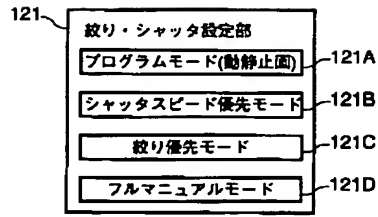 121
絞り・シャッタ設定部
プログラムモード(動静止画)
121A
シャッタスピード優先モード
121B
絞り優先モード
121C
フルマニュアルモード
121D